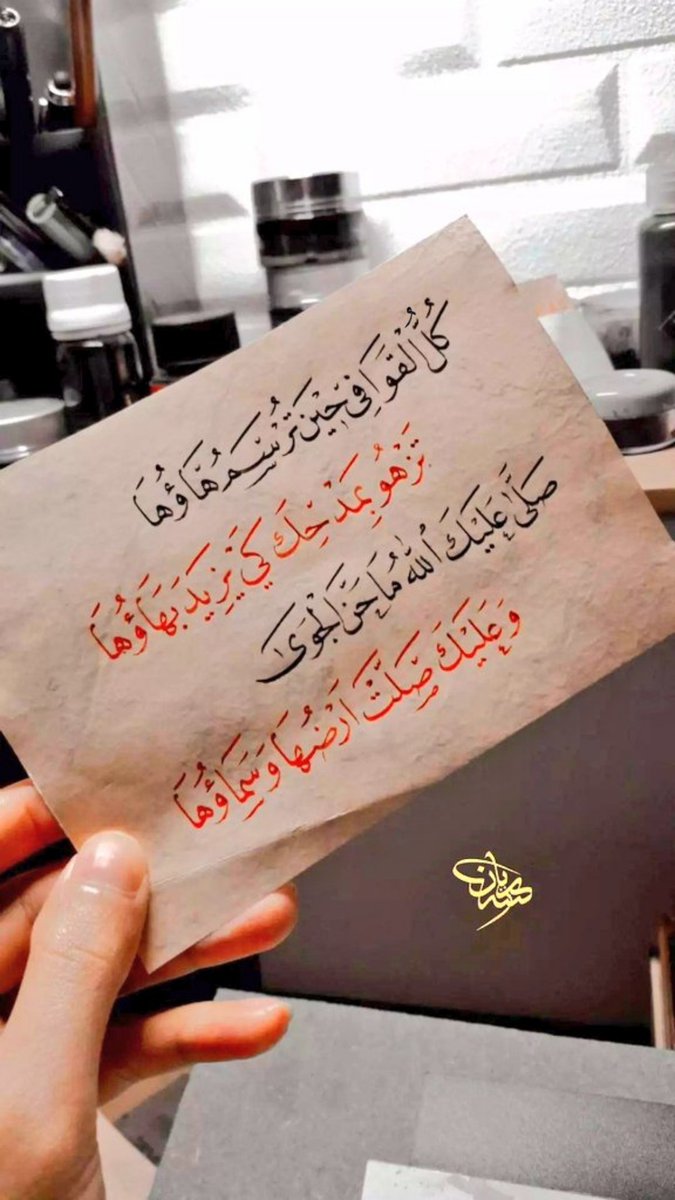 كُلُّ الْقَوَافِي حِيْنَ تَرْسُمُ هَاؤُهَا
تَزْهُو بِمَدْحِكَ كَيْ يَزِيدَ بَهَاؤُهَا
صَلَّى عَلَيْكَ اللهُ مَا حَنَّ الْجَوَى
وَعَلَيْكَ صَلَّتْ اَرْضُهَا وَسَمَاؤُهَا